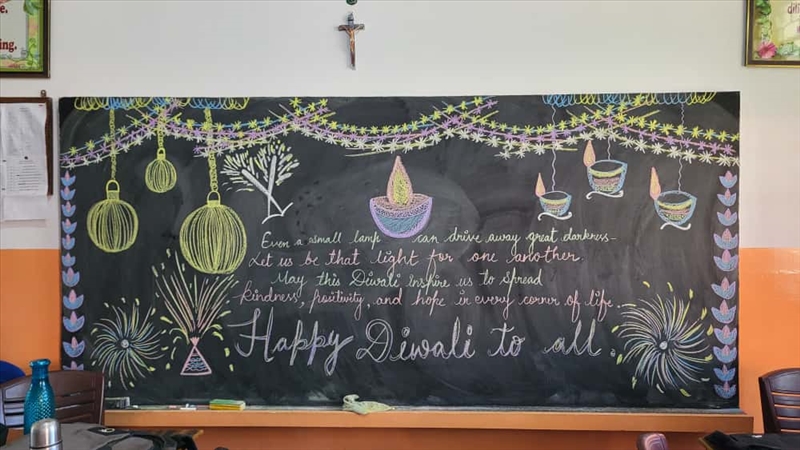 e.
ing.
Even a small lamp can drive away great darkness—
Let us be that light for one another.
May this Diwali inspire us to spread
kindness, positivity, and hope in every corner of life.
Happy Diwali to all.